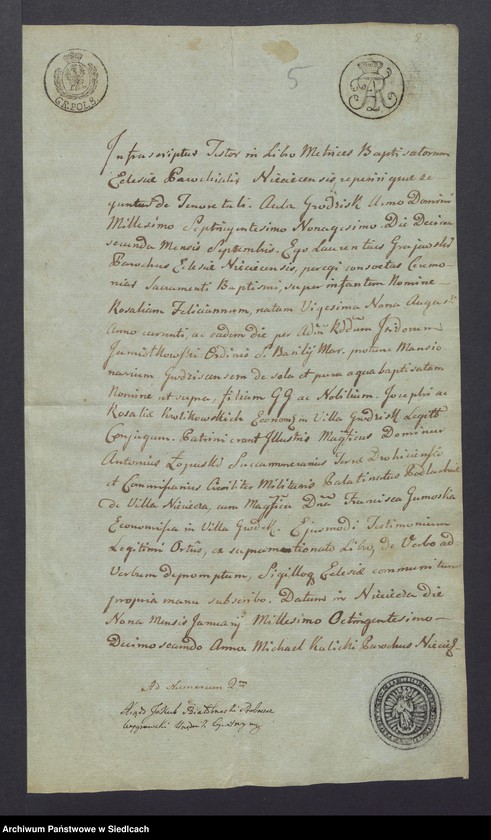 GR. POL. 8.
5
Infrascriptus Testor in Libro Metrices Baptisatorum
Eclesiæ Parochialis Nieciecensis, reperiri que se
quntur de Tenore tali. Aula Grodzisk Anno Domini
Millesimo Septingentesimo Nonagesimo. Die Decima
secunda Mensis Septembris. Ego Laurentius Grajewski
Parochus Eclesiæ Nieciecensis, peregi consvetas Ceremo-
nias Sacramenti Baptismi, super infantem Nomine
Rosaliam Feliciannam, natam Vigesima Nona Augusti
Anno currenti, ac eadem die per Adm Rdum Isidorum
Ordinis S. Basilij Mar. Mansio-
narium de sola et pura aqua baptisatam
Nomine ut supra, filiam GG ac Nobilium Josephi ac
Rosaliæ Krolikowskich Econom in Villa Grodzisk Legitt
Conjugum. Patrini erant Illustris Magficus Dominus
Antonius Łopuski Succamerarius Terræ Drohicensis
et Commissarius Civilis Militaris Palatinatus Podlachiæ
de Villa Niecieca, cum Magfica Dna Francisca
Economissa in Villa Grodzisk. Ejusmodi Testimonium
Legitimi Ortus, ex supramentionato Libro, de Verbo ad
Verbum depromptum, Sigilloq Eclesiæ communitum
propria manu subscribo. Datum in Niecieca die
Nona Mensis Januarij Millesimo Octingentesimo
Decimo secundo Anno. Michael Kulicki Parochus Nieciec
Ad Numerum 2
Xiądz Jakub Białobrzeski Proboszcz
Węgrowski Urzędnik Cywilny
Archiwum Państwowe w Siedlcach